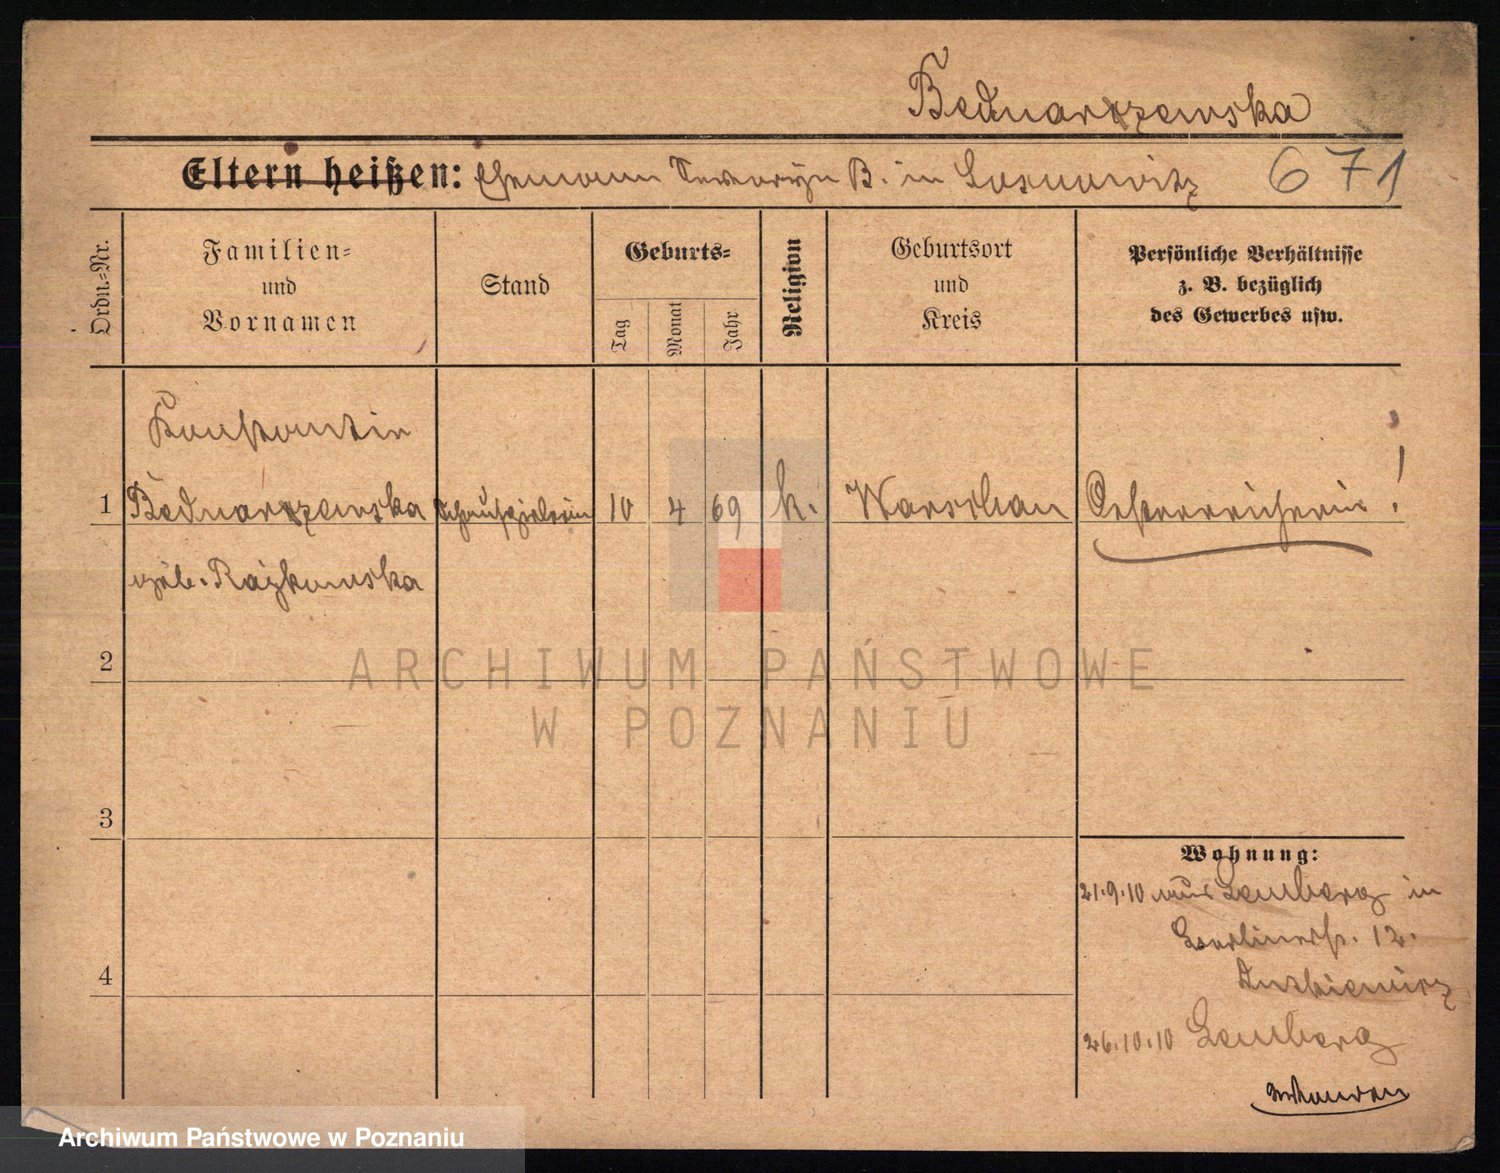 Bednarzewska
Eltern heißen: Ehemann Seweryn B. in Sosnowitz 671
Ordn.-Nr.
Familien-
und
Vornamen
Stand
Geburts-
Tag
Monat
Jahr
Religion
Geburtsort
und
Kreis
Persönliche Verhältnisse
z. B. bezüglich
des Gewerbes usw.
Konstantin
1 Bednarzewska Schauspielerin 10 4 69 k. Warschau Oesterreicherin !
geb. Rajkowska
2
ARCHIWUM PAŃSTWOWE
W POZNANIU
3
Wohnung:
21.9.10 aus Lemberg in
Berlinerstr. 12.
4
26.10.10 Lemberg
Archiwum Państwowe w Poznaniu